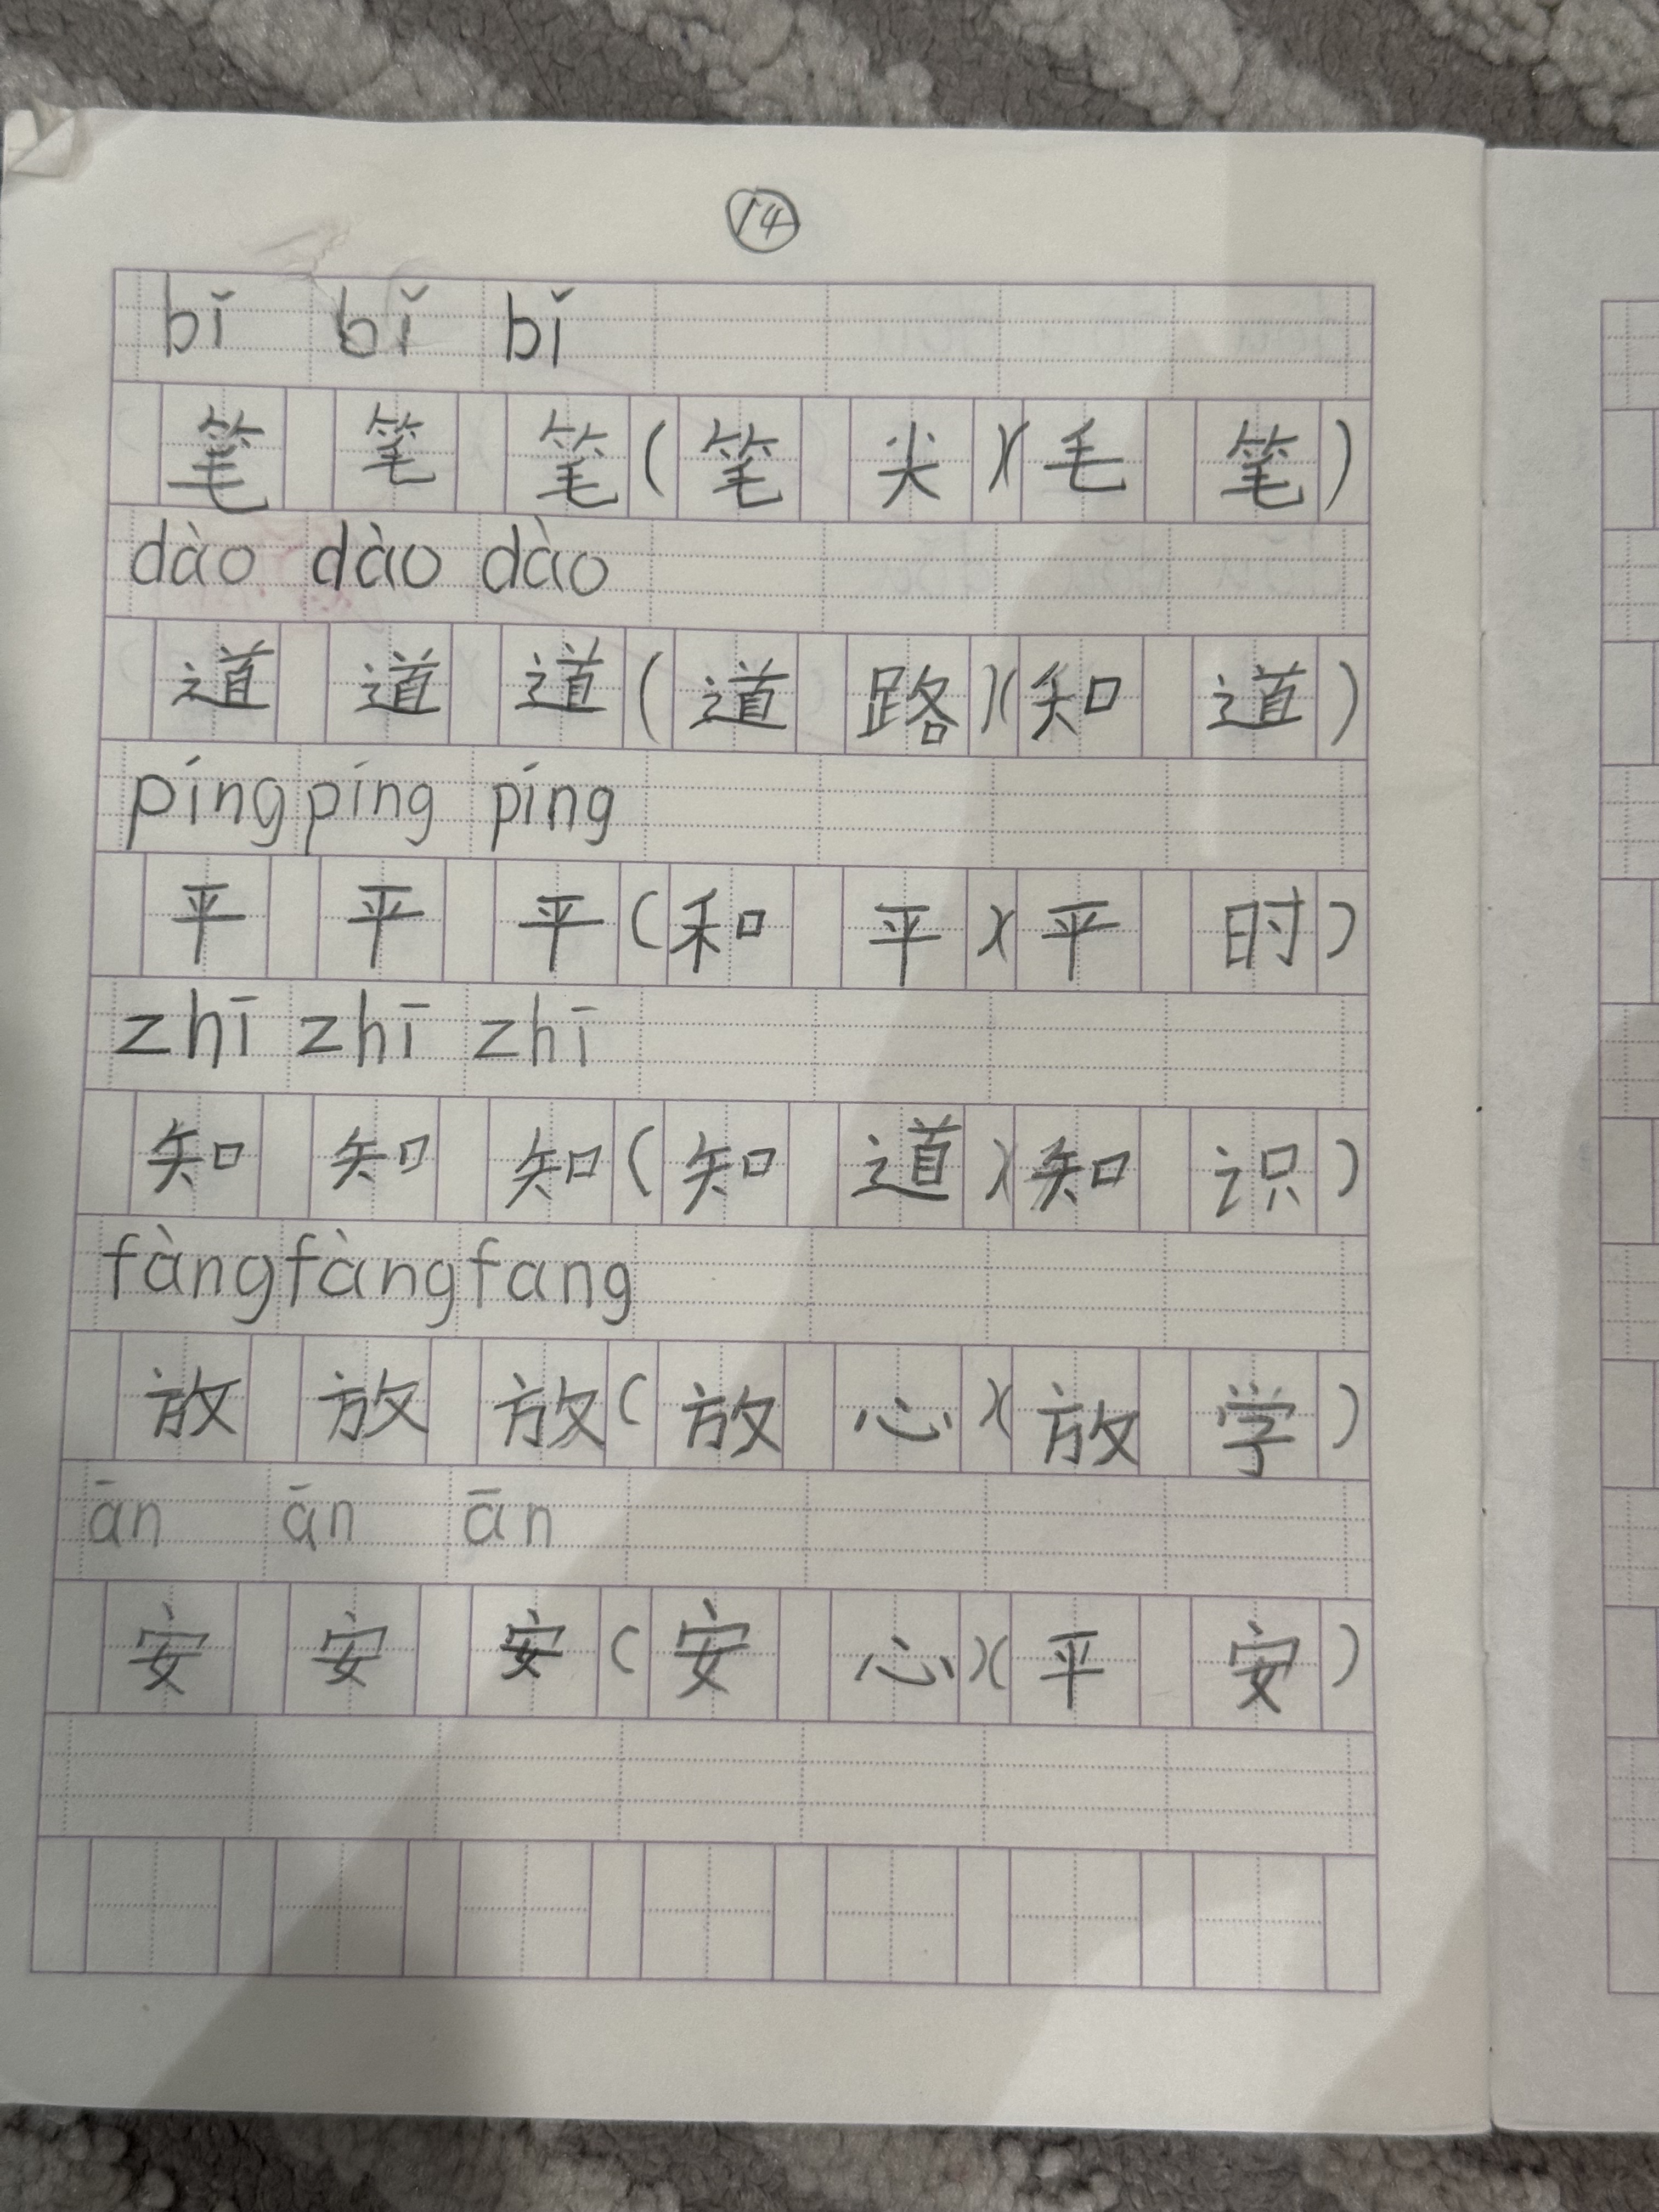 14
bǐ bǐ bǐ
笔 笔 笔 (笔 尖)(毛 笔)
dào dào dào
道 道 道 (道 路)(知 道)
píng píng píng
平 平 平 (和 平)(平 时)
zhī zhī zhī
知 知 知 (知 道)(知 识)
fàng fàng fang
放 放 放 (放 心)(放 学)
ān ān ān
安 安 安 (安 心)(平 安)